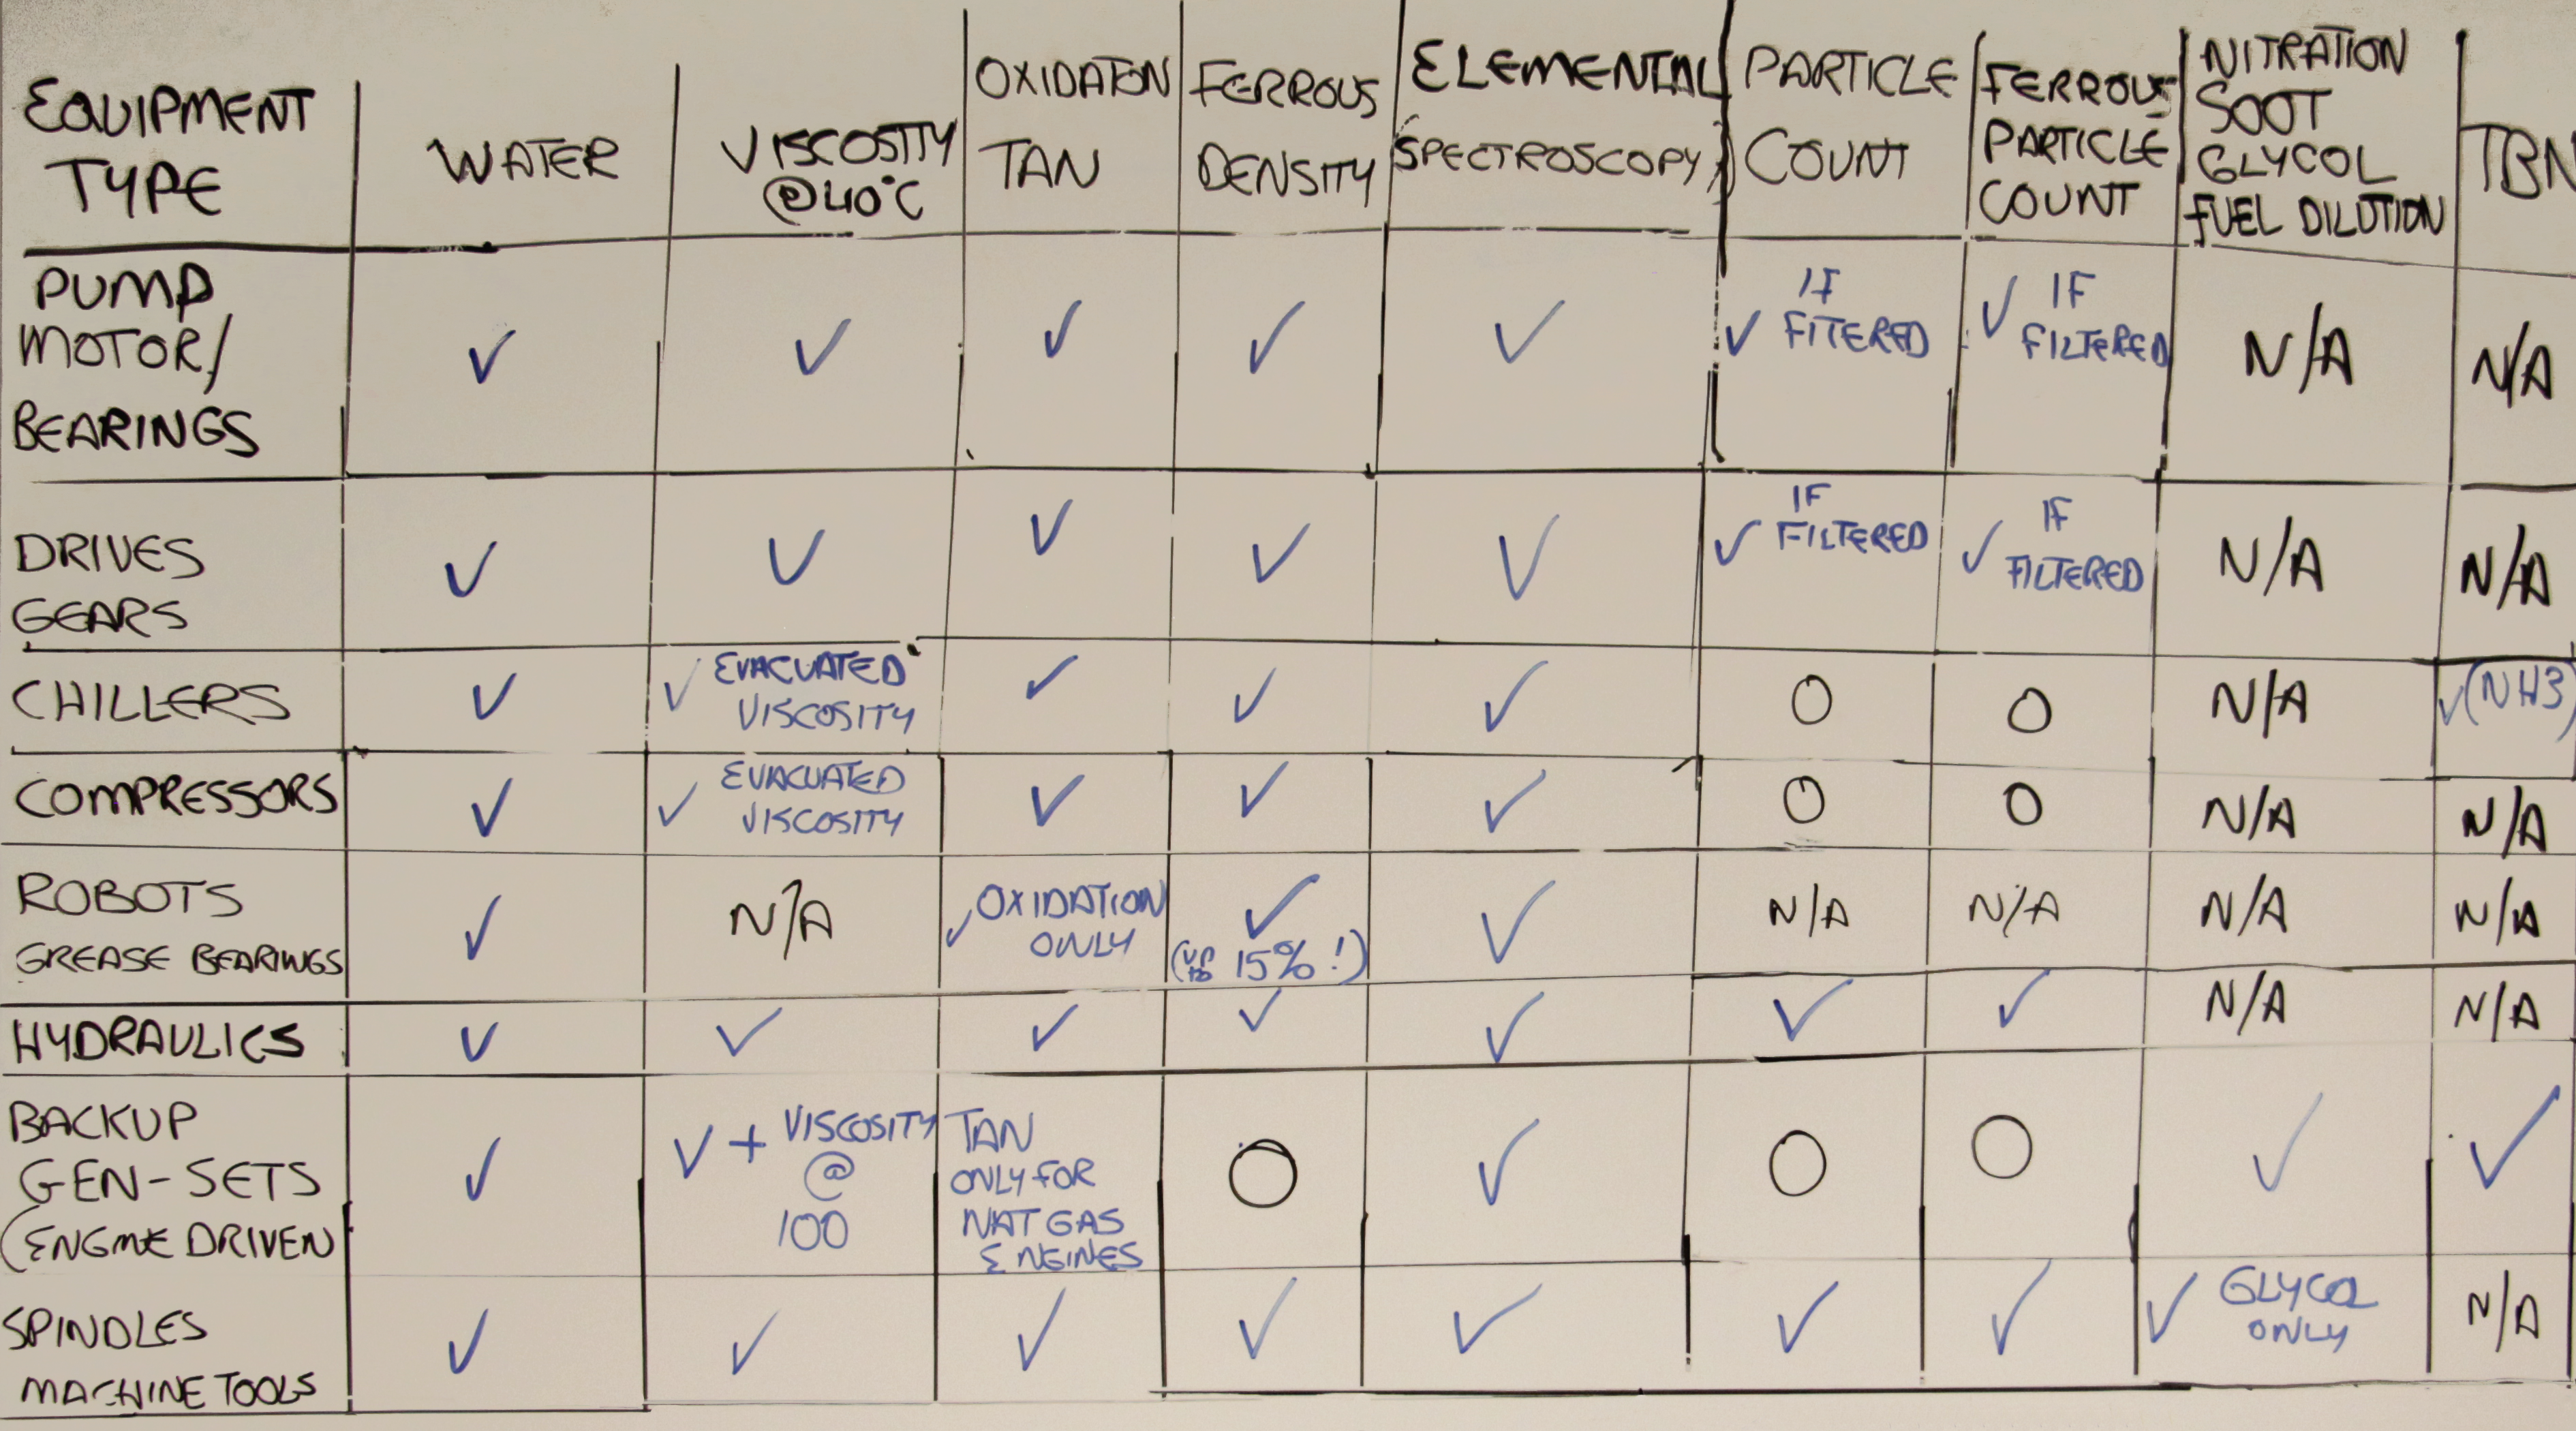 EQUIPMENT
TYPE
WATER
VISCOSITY
@40°C
OXIDATON
TAN
FERROUS
DENSITY
ELEMENTAL
(SPECTROSCOPY)
PARTICLE
COUNT
FERROUS
PARTICLE
COUNT
NITRATION
SOOT
GLYCOL
FUEL DILUTION
TBN
PUMP
MOTOR/
BEARINGS
✓
✓
✓
✓
✓
✓ IF
FITERED
✓ IF
FILTERED
N/A
N/A
DRIVES
GEARS
✓
✓
✓
✓
✓
✓ IF
FILTERED
✓ IF
FILTERED
N/A
N/A
CHILLERS
✓
✓ EVACUATED
VISCOSITY
✓
✓
✓
O
O
N/A
✓(NH3)
COMPRESSORS
✓
✓ EVACUATED
VISCOSITY
✓
✓
✓
O
O
N/A
N/A
ROBOTS
GREASE BEARINGS
✓
N/A
✓ OXIDATION
ONLY
✓
(UP TO 15%!)
✓
N/A
N/A
N/A
N/A
HYDRAULICS
✓
✓
✓
✓
✓
✓
✓
N/A
N/A
BACKUP
GEN-SETS
(ENGINE DRIVEN
✓
✓ + VISCOSITY
@
100
TAN
ONLY FOR
NAT GAS
ENGINES
O
✓
O
O
✓
✓
SPINDLES
MACHINE TOOLS
✓
✓
✓
✓
✓
✓
✓
✓ GLYCOL
ONLY
N/A